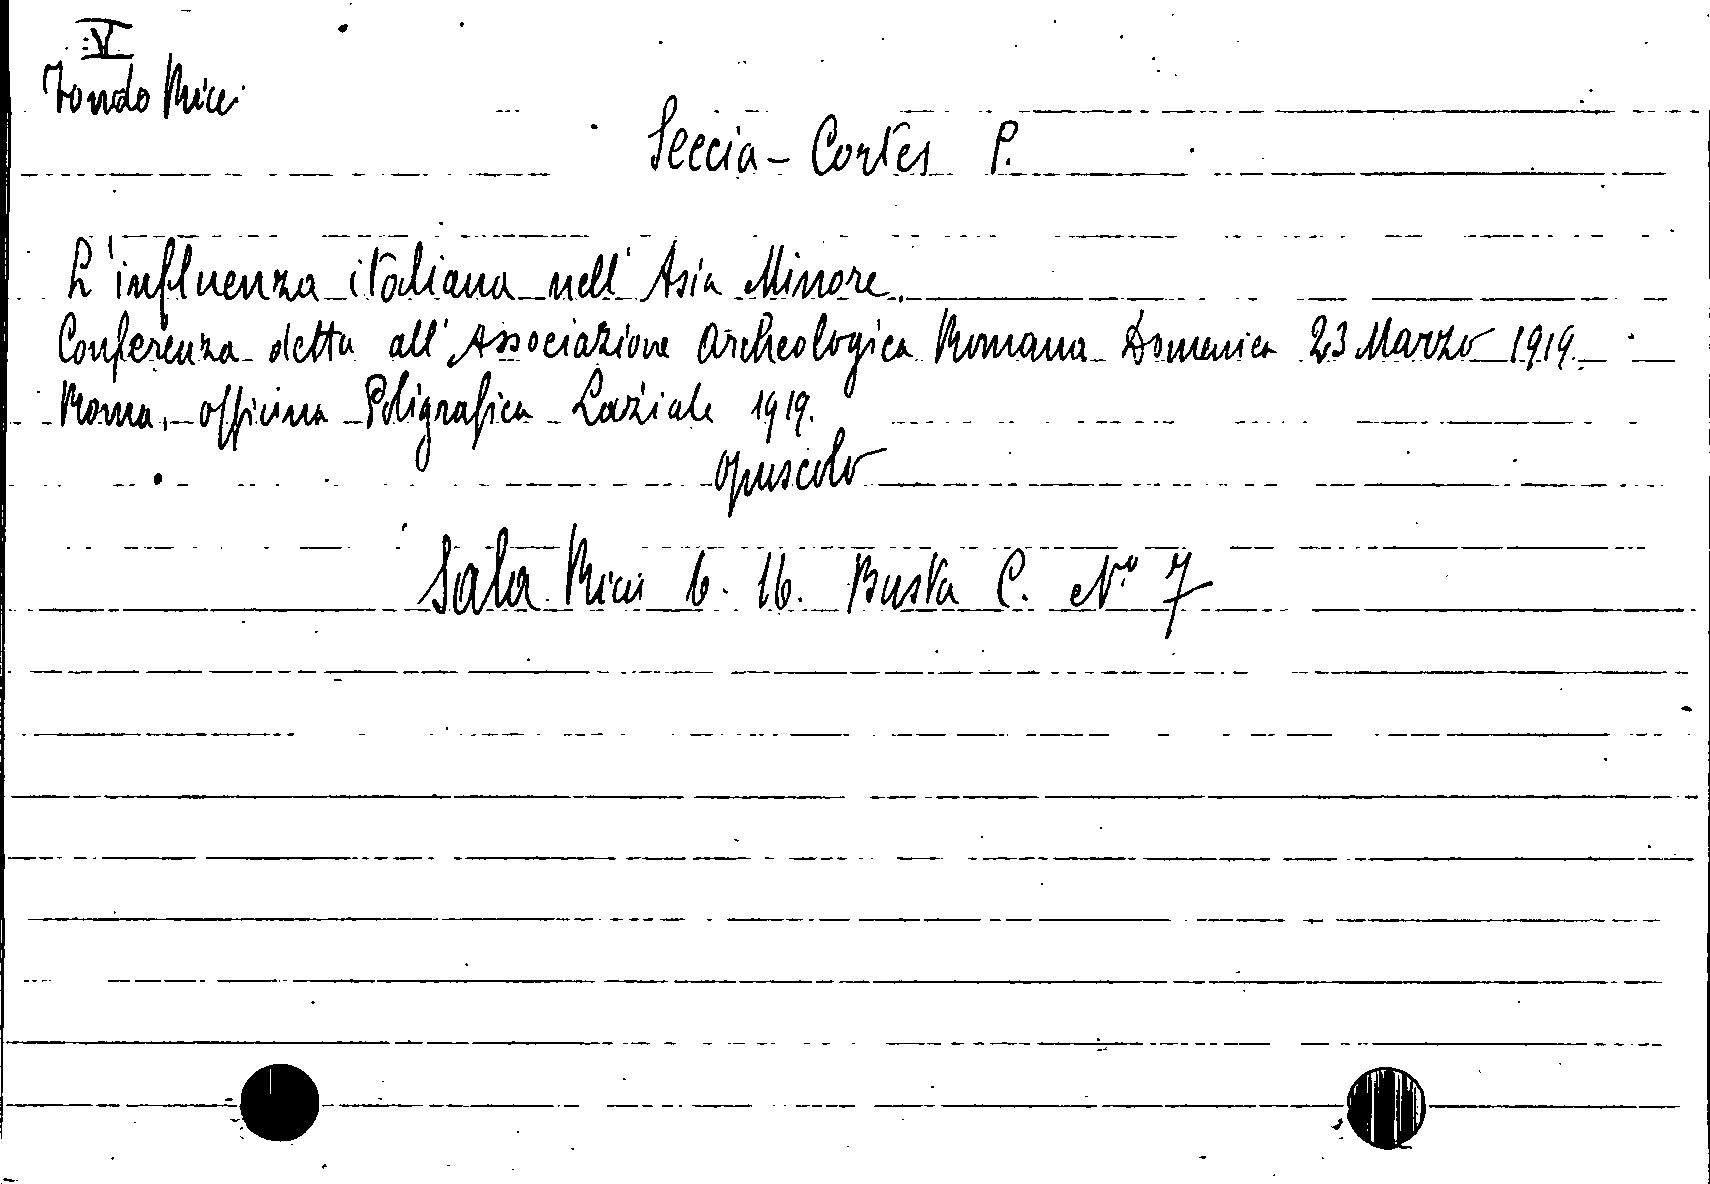 V
Fondo Ricci
Seccia-Cortes P.
L'influenza italiana nell'Asia Minore.
Conferenza detta all'Associazione Archeologica Romana Domenica 23 Marzo 1919.
Roma, officina Poligrafica Laziale 1919.
opuscolo
Sala Ricci 6. 16. Busta C. N.° 7